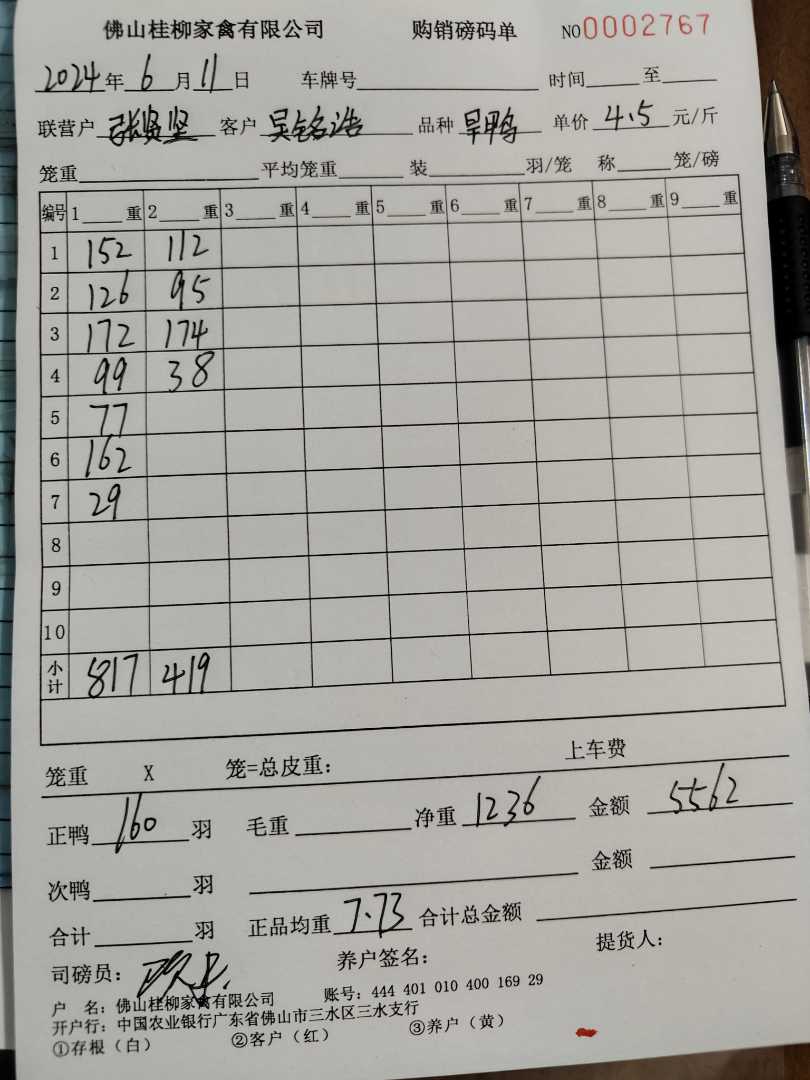 佛山桂柳家禽有限公司 购销磅码单 NO0002767
2024年6月11日 车牌号 时间 至
联营户 张贤坚 客户 吴铭浩 品种 旱鸭 单价 4.5 元/斤
笼重 平均笼重 装 羽/笼 称 笼/磅
编号 1 重 2 重 3 重 4 重 5 重 6 重 7 重 8 重 9 重
1 152 112
2 126 95
3 172 174
4 99 38
5 77
6 162
7 29
8
9
10
小计 817 419
笼重 X 笼=总皮重: 上车费
正鸭 160 羽 毛重 净重 1236 金额 5562
次鸭 羽 金额
合计 羽 正品均重 7.73 合计总金额
司磅员: 养户签名: 提货人:
户 名: 佛山桂柳家禽有限公司 账号: 444 401 010 400 169 29
开户行: 中国农业银行广东省佛山市三水区三水支行
①存根(白) ②客户(红) ③养户(黄)